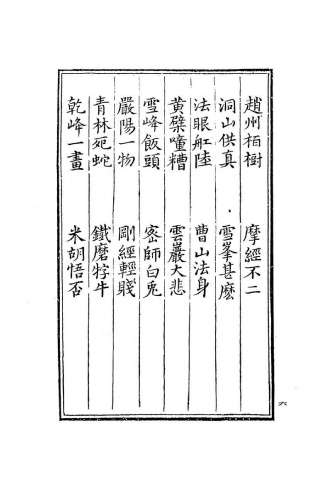 趙州栢樹　摩經不二
洞山供真　雪峯甚麽
法眼舡陸　曹山法身
黄檗噇糟　雲巖大悲
雪峰飯頭　宻師白兎
嚴陽一物　剛經輕賤
青林死蛇　鐵磨牸牛
乾峰一畫　米胡悟否
六